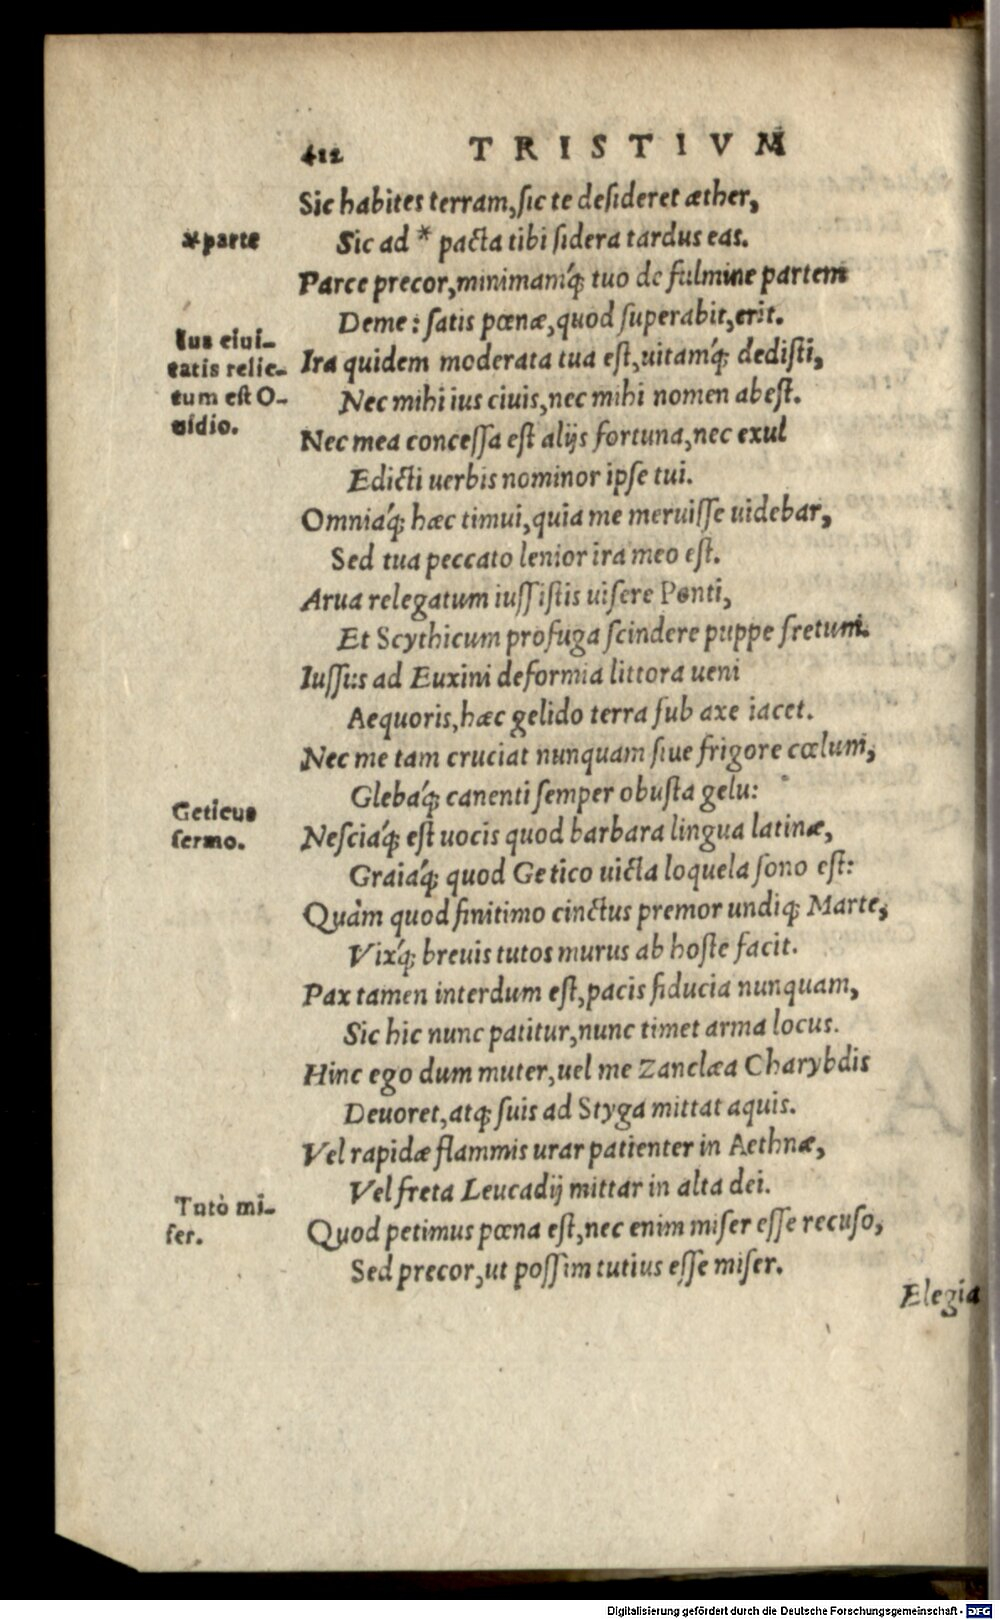 412 TRISTIVM
Sic habites terram, ſic te deſideret æther,
*parte
Sic ad * pacta tibi ſidera tardus eas.
Parce precor, minimamq́; tuo de fulmine partem
Deme: ſatis pœnæ, quod ſuperabit, erit.
Ius ciui-
tatis relic-
tum est O-
uidio.
Ira quidem moderata tua eſt, uitamq́; dediſti,
Nec mihi ius ciuis, nec mihi nomen abeſt.
Nec mea conceſſa eſt alijs fortuna, nec exul
Edicti uerbis nominor ipſe tui.
Omniaq́; hæc timui, quia me meruiſſe uidebar,
Sed tua peccato lenior ira meo eſt.
Arua relegatum iuſſiſtis uiſere Ponti,
Et Scythicum profuga ſcindere puppe fretum.
Iuſſus ad Euxini deformia littora ueni
Aequoris, hæc gelido terra ſub axe iacet.
Nec me tam cruciat nunquam ſiue frigore cœlum,
Glebaq́; canenti ſemper obuſta gelu:
Geticus
ſermo.
Neſciaq́; eſt uocis quod barbara lingua latinæ,
Graiaq́; quod Getico uicta loquela ſono eſt:
Quàm quod finitimo cinctus premor undiq; Marte,
Vixq́; breuis tutos murus ab hoſte facit.
Pax tamen interdum eſt, pacis fiducia nunquam,
Sic hic nunc patitur, nunc timet arma locus.
Hinc ego dum muter, uel me Zanclæa Charybdis
Deuoret, atq; ſuis ad Styga mittat aquis.
Vel rapidæ flammis urar patienter in Aethnæ,
Vel freta Leucadij mittar in alta dei.
Tutò mi-
ſer.
Quod petimus pœna eſt, nec enim miſer eſſe recuſo,
Sed precor, ut poſſim tutius eſſe miſer.
Elegia
Digitalisierung gefördert durch die Deutsche Forschungsgemeinschaft - DFG